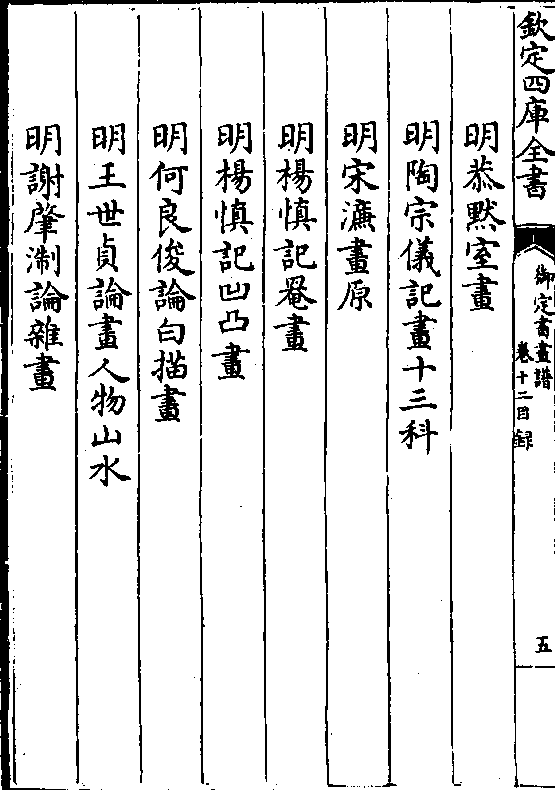 欽定四庫全書
御定書畫譜
卷十二目錄
五
明恭默室畫
明陶宗儀記畫十三科
明宋濂畫原
明楊慎記罨畫
明楊慎記凹凸畫
明何良俊論白描畫
明王世貞論畫人物山水
明謝肇淛論雜畫